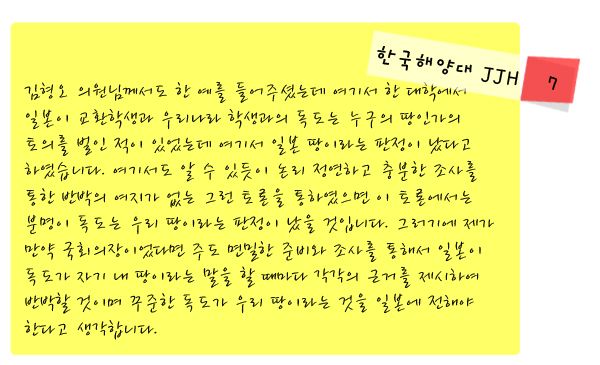 한국해양대 JJH
7
김형오 의원님께서도 한 예를 들어주셨는데 여기서 한 대학에서
일본이 교환학생과 우리나라 학생과의 독도는 누구의 땅인가의
토의를 벌인 적이 있었는데 여기서 일본 땅이라는 판정이 났다고
하였습니다. 여기서도 알 수 있듯이 논리 정연하고 충분한 조사를
통한 반박의 여지가 없는 그런 토론을 통하였으면 이 토론에서는
분명이 독도는 우리 땅이라는 판정이 났을 것입니다. 그러기에 제가
만약 국회의장이었다면 주도 면밀한 준비와 조사를 통해서 일본이
독도가 자기 내 땅이라는 말을 할 때마다 각각의 근거를 제시하여
반박할 것이며 꾸준한 독도가 우리 땅이라는 것을 일본에 전해야
한다고 생각합니다.